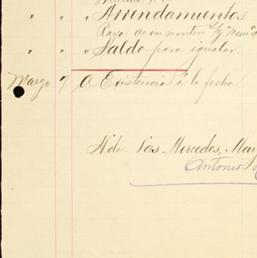 " " " Arrendamientos
Raya de un montero
" " " Saldo para igualar.
Marzo 7 A Existencia a la fecha
Hda. Las Mercedes, Mar
Antonio